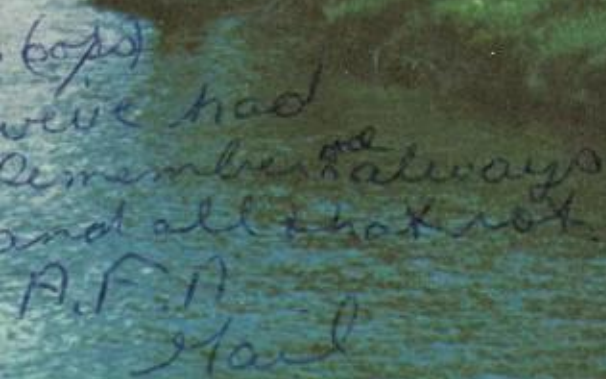 (oops)
we've had
Remember me always
and all that rot.
A.F.A.
Gail